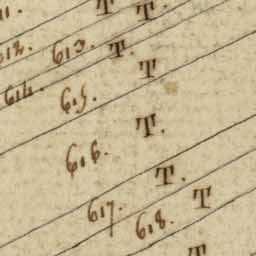 11. T
612. T.
613. T.
614. T
615. T.
616. T.
617. T
618. T